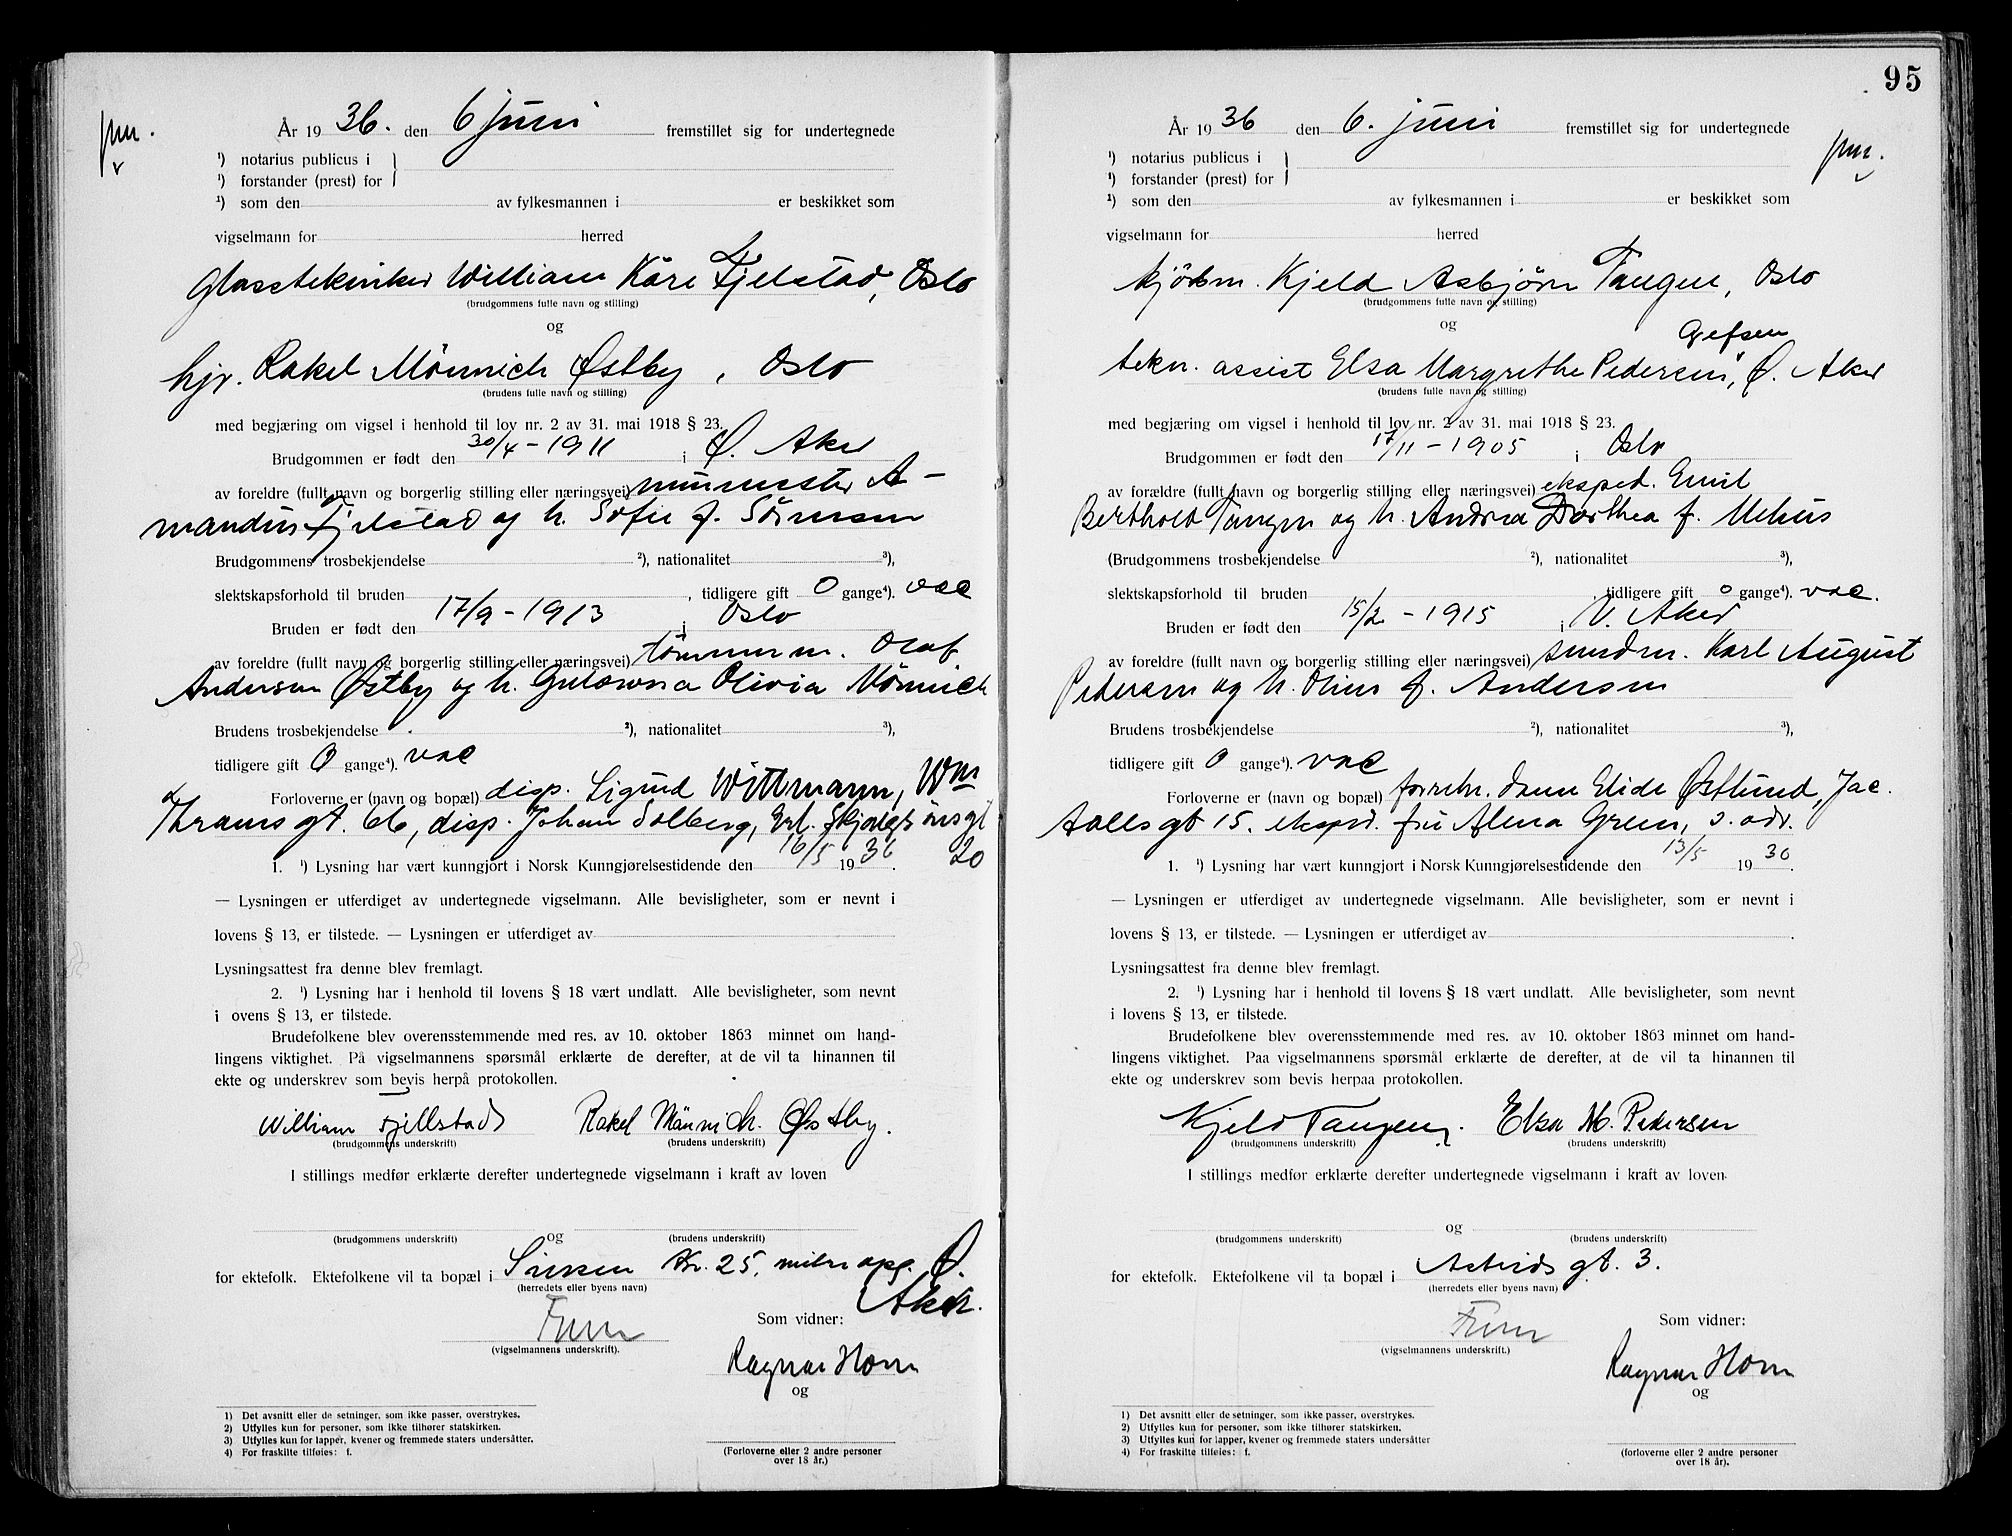 pm.
År 1936. den 6 juni fremstillet sig for undertegnede
¹) notarius publicus i
¹) forstander (prest) for
¹) som den av fylkesmannen i er beskikket som
vigselmann for herred
Glasstekniker William Kåre Fjelstad, Oslo
(brudgommens fulle navn og stilling)
og
hjr. Rakel Mönnich Østby, Oslo
(brudens fulle navn og stilling)
med begjæring om vigsel i henhold til lov nr. 2 av 31. mai 1918 § 23.
Brudgommen er født den 30/4-1911 i Ø. Aker
av foreldre (fullt navn og borgerlig stilling eller næringsvei) murmester A-
mandus Fjelstad og h. Sofie f. Sörensen
Brudgommens trosbekjendelse ²), nationalitet ³),
slektskapsforhold til bruden , tidligere gift 0 gange⁴). vac
Bruden er født den 17/9-1913 i Oslo
av foreldre (fullt navn og borgerlig stilling eller næringsvei) tömmerm. Olaf
Andersen Østby og h. Olivia Mönnich
Brudens trosbekjendelse ²), nationalitet ³),
tidligere gift 0 gange⁴). vac
Forloverne er (navn og bopæl) disp. Sigurd Wittmann, Wm
Thranes gt. 66, disp. Johan Solberg, Erl. Skjalgsönsgt
20
1. ¹) Lysning har vært kunngjort i Norsk Kunngjørelsestidende den 16/5 1936.
— Lysningen er utferdiget av undertegnede vigselmann. Alle bevisligheter, som er nevnt i
lovens § 13, er tilstede. — Lysningen er utferdiget av
Lysningsattest fra denne blev fremlagt.
2. ¹) Lysning har i henhold til lovens § 18 vært undlatt. Alle bevisligheter, som nevnt
i ovens § 13, er tilstede.
Brudefolkene blev overensstemmende med res. av 10. oktober 1863 minnet om hand-
lingens viktighet. På vigselmannens spørsmål erklærte de derefter, at de vil ta hinannen til
ekte og underskrev som bevis herpå protokollen.
William Fjellstad Rakel Mönnich Østby.
(brudgommens underskrift) (brudens underskrift)
I stillings medfør erklærte derefter undertegnede vigselmann i kraft av loven
og
(brudgommens underskrift) (brudens underskrift)
for ektefolk. Ektefolkene vil ta bopæl i Sinsen 25, Ø.
Aker.
(herredets eller byens navn)
Som vidner:
(vigselmannens underskrift).
Ragnar Horn
og
1) Det avsnitt eller de setninger, som ikke passer, overstrykes.
2) Utfylles kun for personer, som ikke tilhører statskirken.
3) Utfylles kun for lapper, kvener og fremmede staters undersåtter.
4) For fraskilte tilføies: f.
(Forloverne eller 2 andre personer
over 18 år.)
95
pm.
År 1936 den 6. juni fremstillet sig for undertegnede
¹) notarius publicus i
¹) forstander (prest) for
¹) som den av fylkesmannen i er beskikket som
vigselmann for herred
kjöbm. Kjeld Asbjörn Tangen, Oslo
(brudgommens fulle navn og stilling)
og
Grefsen
tekn. assist Elsa Margrethe Pedersen, Ø. Aker
(brudens fulle navn og stilling)
med begjæring om vigsel i henhold til lov nr. 2 av 31. mai 1918 § 23.
Brudgommen er født den 17/11-1905 i Oslo
av forældre (fullt navn og borgerlig stilling eller næringsvei) eksped. Emil
Berthold Tangen og h. Andrea Dorthea f. Mehus
(Brudgommens trosbekjendelse ²), nationalitet ³),
slektskapsforhold til bruden , tidligere gift 0 gange⁴). vac.
Bruden er født den 15/2-1915 i V. Aker
av foreldre (fullt navn og borgerlig stilling eller næringsvei) smedm. Karl August
Pedersen og h. Oline f. Andersen
Brudens trosbekjendelse ²), nationalitet ³),
tidligere gift 0 gange⁴). vac
Forloverne er (navn og bopæl) forretn. dame Elide Østlund, Jac.
Aalls gt 15. eksped. fru Alma Green, s. adr.
1. ¹) Lysning har vært kunngjort i Norsk Kunngjørelsestidende den 13/5 1936.
— Lysningen er utferdiget av undertegnede vigselmann. Alle bevisligheter, som er nevnt i
lovens § 13, er tilstede. — Lysningen er utferdiget av .
Lysningsattest fra denne blev fremlagt.
2. ¹) Lysning har i henhold til lovens § 18 vært undlatt. Alle bevisligheter, som nevnt
i lovens § 13, er tilstede.
Brudefolkene blev overensstemmende med res. av 10. oktober 1863 minnet om hand-
lingens viktighet. Paa vigselmannens spørsmål erklærte de derefter, at de vil ta hinannen til
ekte og underskrev som bevis herpaa protokollen.
Kjeld Tangen. Elsa M. Pedersen
(brudgommens underskrift) (brudens underskrift)
I stillings medfør erklærte derefter undertegnede vigselmann i kraft av loven
og
(brudgommens underskrift) (brudens underskrift)
for ektefolk. Ektefolkene vil ta bopæl i Astrids gt. 3.
(herredets eller byens navn)
Som vidner:
(vigselmannens underskrift.)
Ragnar Horn
og
1) Det avsnitt eller de setninger, som ikke passer, overstrykes.
2) Utfylles kun for personer, som ikke tilhører statskirken.
3) Utfylles kun for lapper, kvener og fremmede staters undersåtter
4) For fraskilte tilføies: f.
(forloverne eller 2 andre personer
over 18 år).